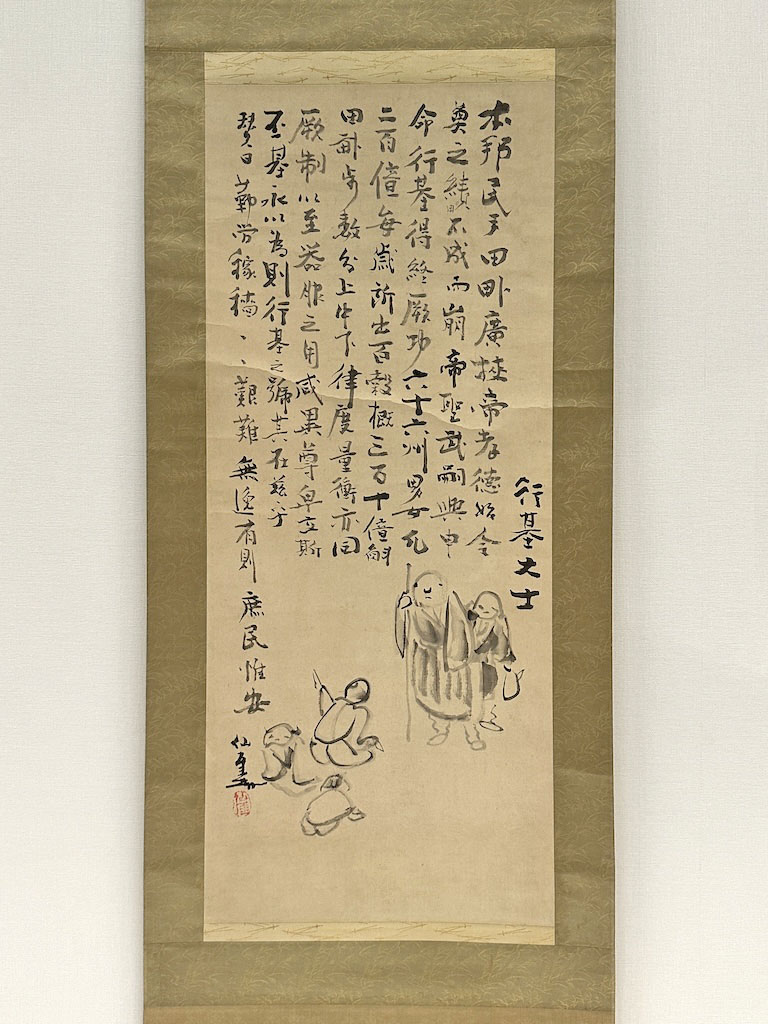 行基大士
本邦民戸田畝廣狹帝孝德始令
奠之績不成而崩帝聖武嗣興申
命行基得終厥功六十六州男女凡
二百億每歲所出百穀概三百十億斛
田畝步數分上中下律度量衡亦因
厥制以至器服之用咸異尊卑立斯
丕基永以為則行基之號其在茲乎
賛曰勤労稼穡〻〻艱難無逸有則庶民惟安
仙厓